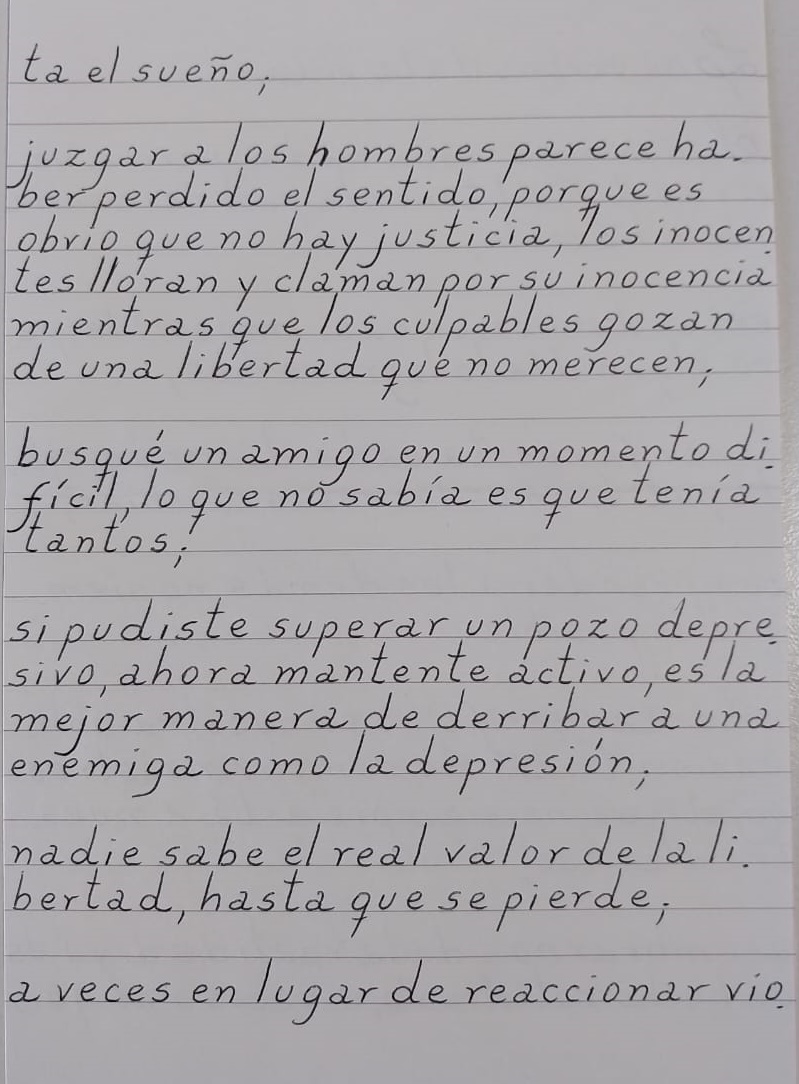 ta el sueño;
juzgar a los hombres parece ha-
ber perdido el sentido, porque es
obvio que no hay justicia, los inocen
tes lloran y claman por su inocencia
mientras que los culpables gozan
de una libertad que no merecen;
busqué un amigo en un momento di-
fícil, lo que no sabía es que tenía
tantos;
si pudiste superar un pozo depre-
sivo, ahora mantente activo, es la
mejor manera de derribar a una
enemiga como la depresión;
nadie sabe el real valor de la li-
bertad, hasta que se pierde;
a veces en lugar de reaccionar vio-